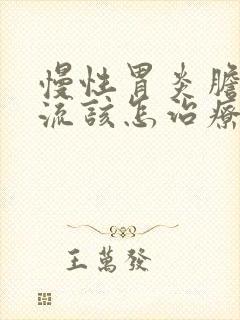 慢性胃炎膽
流該怎治療
王萬發